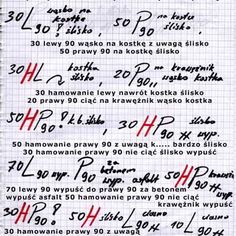 30L wąsko na kostkę 90? ślisko, 50P na kostce 90 ślisko
30 lewy 90 wąsko na kostkę z uwagą ślisko
50 prawy 90 na kostkę ślisko
30HL kostka 90 ślisko, 20P na krawężnik 90 wąsko kostka
30 hamowanie lewy nawrót kostka ślisko
20 prawy 90 nie ciąć na krawężnik wąsko kostka
50HP ! k.b. ślisko 90?, 30HP 90 wyp.
50 hamowanie prawy 90 z uwagą k..... bardzo ślisko
30 hamowanie prawy 90 nie ciąć ślisko wypuść
70L wyp. 90, P za betonem 90 wyp. asfalt, 50HP 90 wyp.
70 lewy 90 wypuść do prawy 90 za betonem
wypuść asfalt 50 hamowanie prawy 90 nie ciąć
krawężnik wypuść
30H 90?, 50H ślisko 90, 40L ciasno 90, 10L ciasno 90
30 hamowanie prawy 90 z uwagą